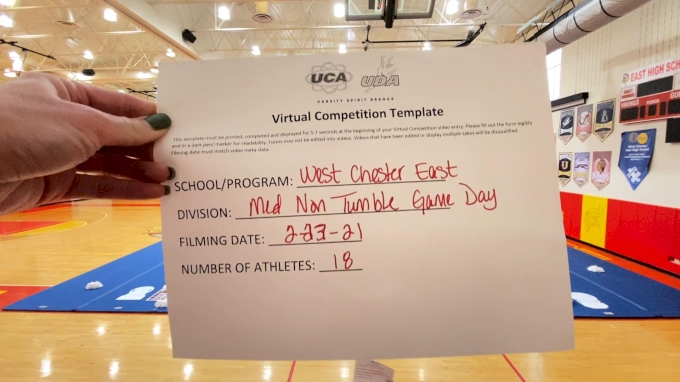 UCA
UDA
VARSITY SPIRIT BRANDS
Virtual Competition Template
This template must be printed, completed and displayed for 5-7 seconds at the beginning of your Virtual Competition video entry. Please fill out the form legibly
and in a dark pen/ marker for readability. Forms may not be edited into videos. Videos that have been edited or display multiple takes will be disqualified.
Filming date must match video meta data.
SCHOOL/PROGRAM: West Chester East
DIVISION: Med Non Tumble Game Day
FILMING DATE: 2-23-21
NUMBER OF ATHLETES: 18
EAST HIGH SC